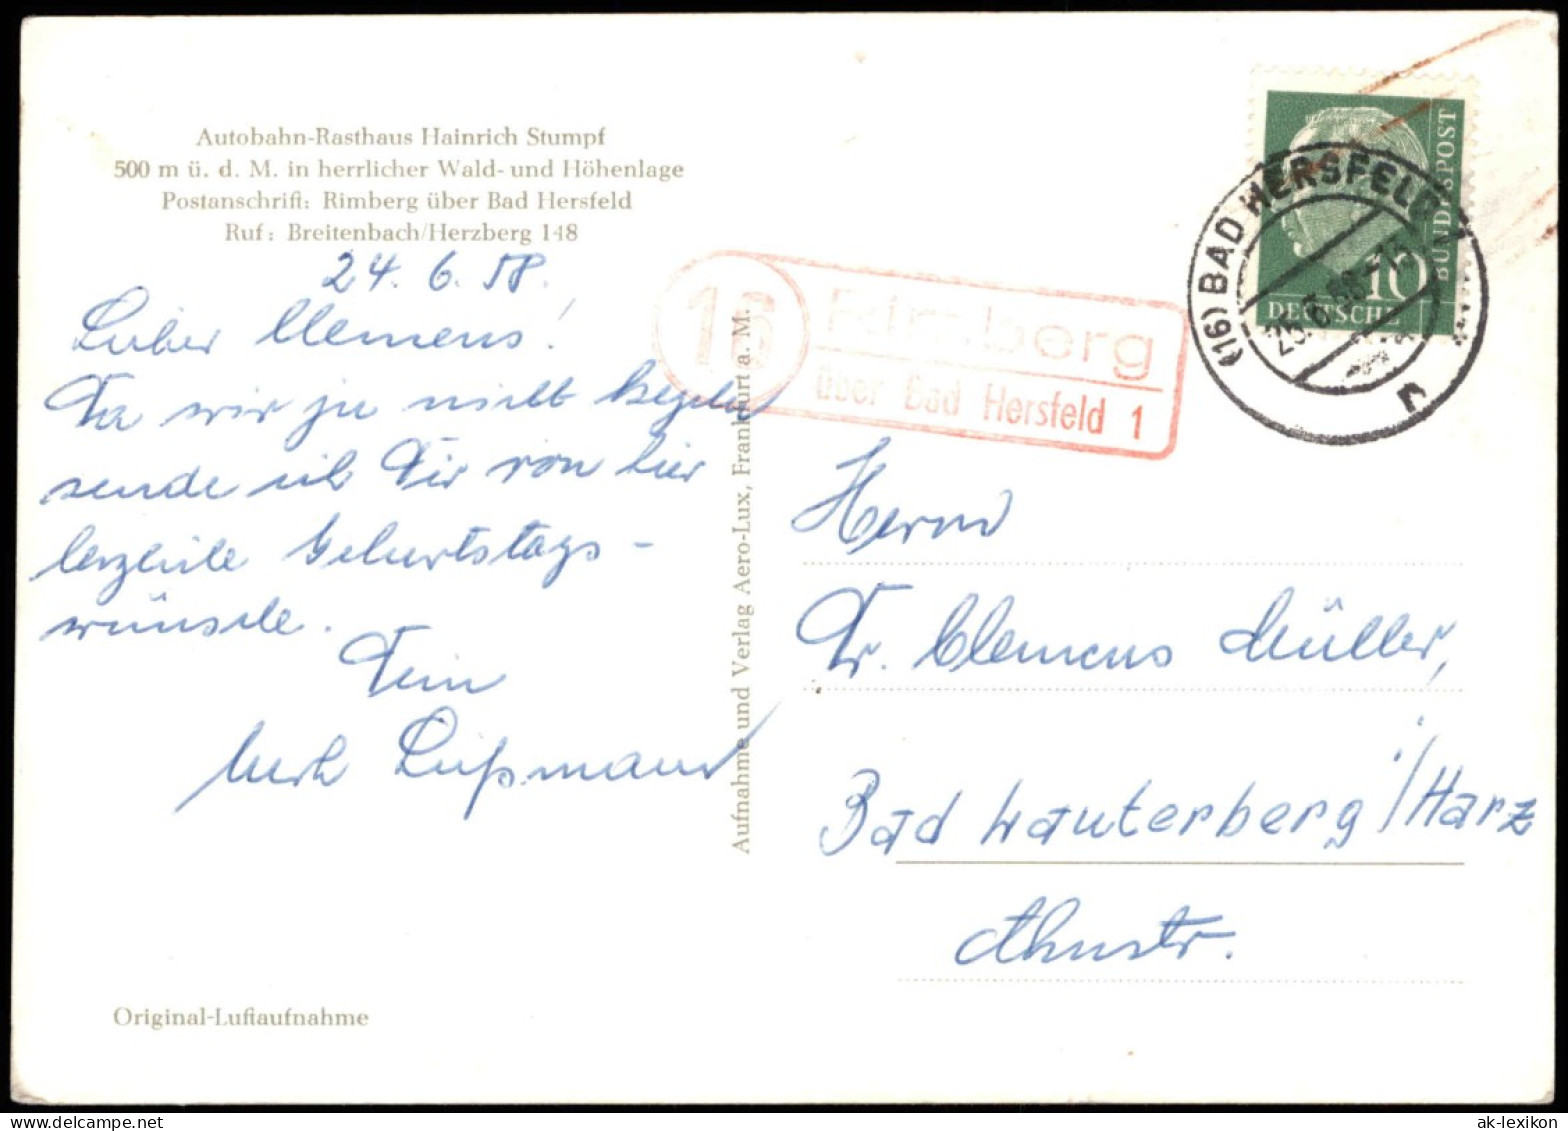 Autobahn-Rasthaus Hainrich Stumpf
500 m ü. d. M. in herrlicher Wald- und Höhenlage
Postanschrift: Rimberg über Bad Hersfeld
Ruf: Breitenbach/Herzberg 148
24. 6. 58.
Lieber Clemens!
Da wir ja nicht kegeln
sende ich Dir von hier
herzliche Geburtstags-
wünsche.
Dein
Aufnahme und Verlag Aero-Lux, Frankfurt a. M.
Original-Luftaufnahme
16 Rimberg
über Bad Hersfeld 1
(16) BAD HERSFELD 1
25.6.58-15
DEUTSCHE
BUNDESPOST
10
Herrn
Dr. Clemens Müller,
Bad Lauterberg i/Harz
Ahnstr.
ak-lexikon